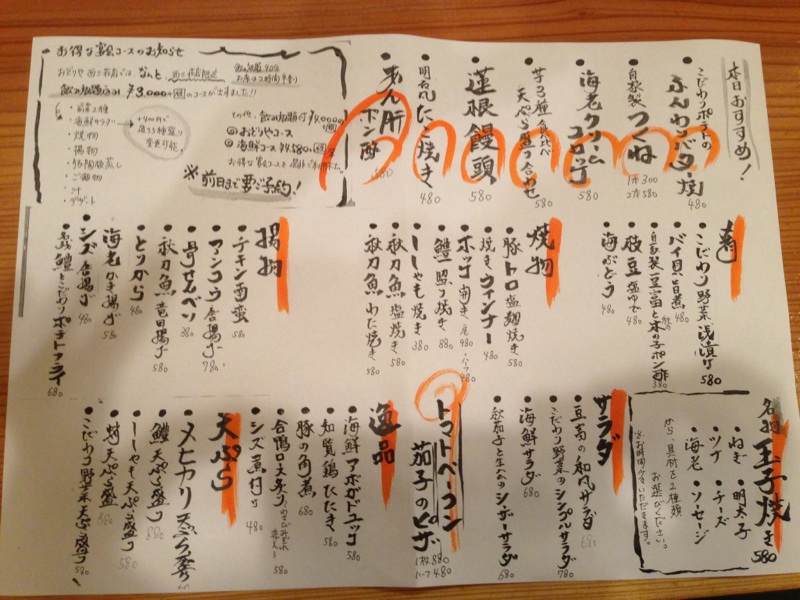 本日おすすめ!
こだわりポテトの
ふんわりバター焼
480
自家製
つくね
1本300
2本580
海老クリーム
コロッケ
580
芋3種の食べ比べ
天ぷら盛り合わせ
580
蓮根饅頭
580
明石風たこ焼き
480
あん肝
ポン酢
580
お得な宴会コースのお知らせ
飲み放題込み ¥3,000
のコースが出来ました!!
・海鮮サラダ
・焼物
・揚物
・ご飯物
・汁
・デザート
その他、飲み放題付¥4,000
おどりやコース
海鮮コース ¥4,580
※前日まで要ご予約!
肴
こだわり野菜浅漬け
580
バイ貝旨煮
480
自家製豆富と木の子ポン酢
380
枝豆塩ゆで
480
海ぶどう
480
焼物
豚トロ塩麹焼き
580
焼きウィンナー
480
ホッケ開き
鱧照り焼き
880
ししゃも焼き
380
秋刀魚塩焼き
580
秋刀魚わた焼き
580
揚物
チキン南蛮
580
アンコウ唐揚げ
780
骨せんべい
380
秋刀魚竜田揚げ
580
とりから
480
海老かき揚げ
580
シズ唐揚げ
480
鱧とこだわりポテトフライ
680
名物
玉子焼き
580
・ねぎ ・明太子
・ツナ ・チーズ
・海老 ・ソーセージ
から、具材を2種類
お選びください。
※お時間少々いただきます。
サラダ
豆富の和風サラダ
680
こだわり野菜のシンプルサラダ
780
海鮮サラダ
680
シーザーサラダ
680
トマトベーコン
茄子のピザ
1枚880
ハーフ480
逸品
海鮮アボガドユッケ
580
知覧鶏たたき
580
豚の角煮
680
合鴨ロース炙り
580
シズ煮付け
480
天ぷら
メヒカリ天ぷら
鱧天ぷら盛り
880
ししゃも天ぷら盛り
580
天ぷら盛り
580
こだわり野菜天ぷら盛り
580